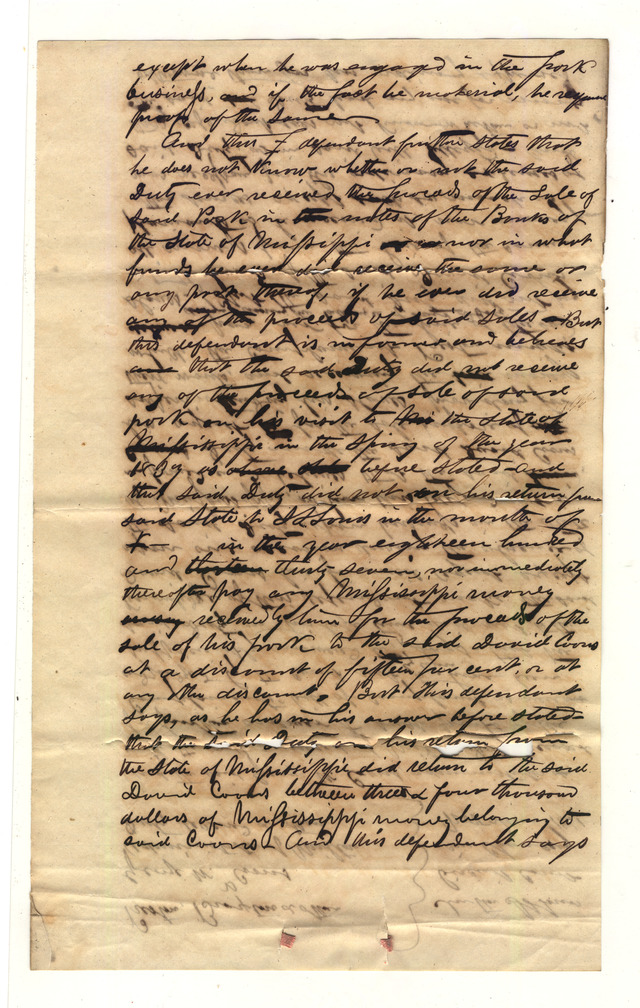 except when he was engaged in the pork
business, and if the fact be material, he requires
proof of the same
And this defendant further states that
he does not know whether or not the said
Duty ever received the proceeds of the Sale of
said Pork in the notes of the Banks of
the State of Mississippi nor in what
funds he ever did receive the same or
any part thereof, if he ever did receive
any of the proceeds of said Sales But
this defendant is informed and believes
that the said Duty did not receive
any of the proceeds of sale of said
pork on his visit to the State of
Mississippi in the Spring of the year
as before stated and
that said Duty did not on his return from
said State to St Louis in the month of
in the year eighteen hundred
and thirteen thirty seven, nor immediately
thereafter pay any Mississippi money
received by him for the proceeds of the
sale of his pork to the said David Coons
at a discount of fifteen per cent, or at
any other discount. But this defendant
says, as he has in his answer before stated
that the said Duty on his return from
the State of Mississippi did return to the said
David Coons between three & four thousand
dollars of Mississippi money belonging to
said Coons - And this defendant says